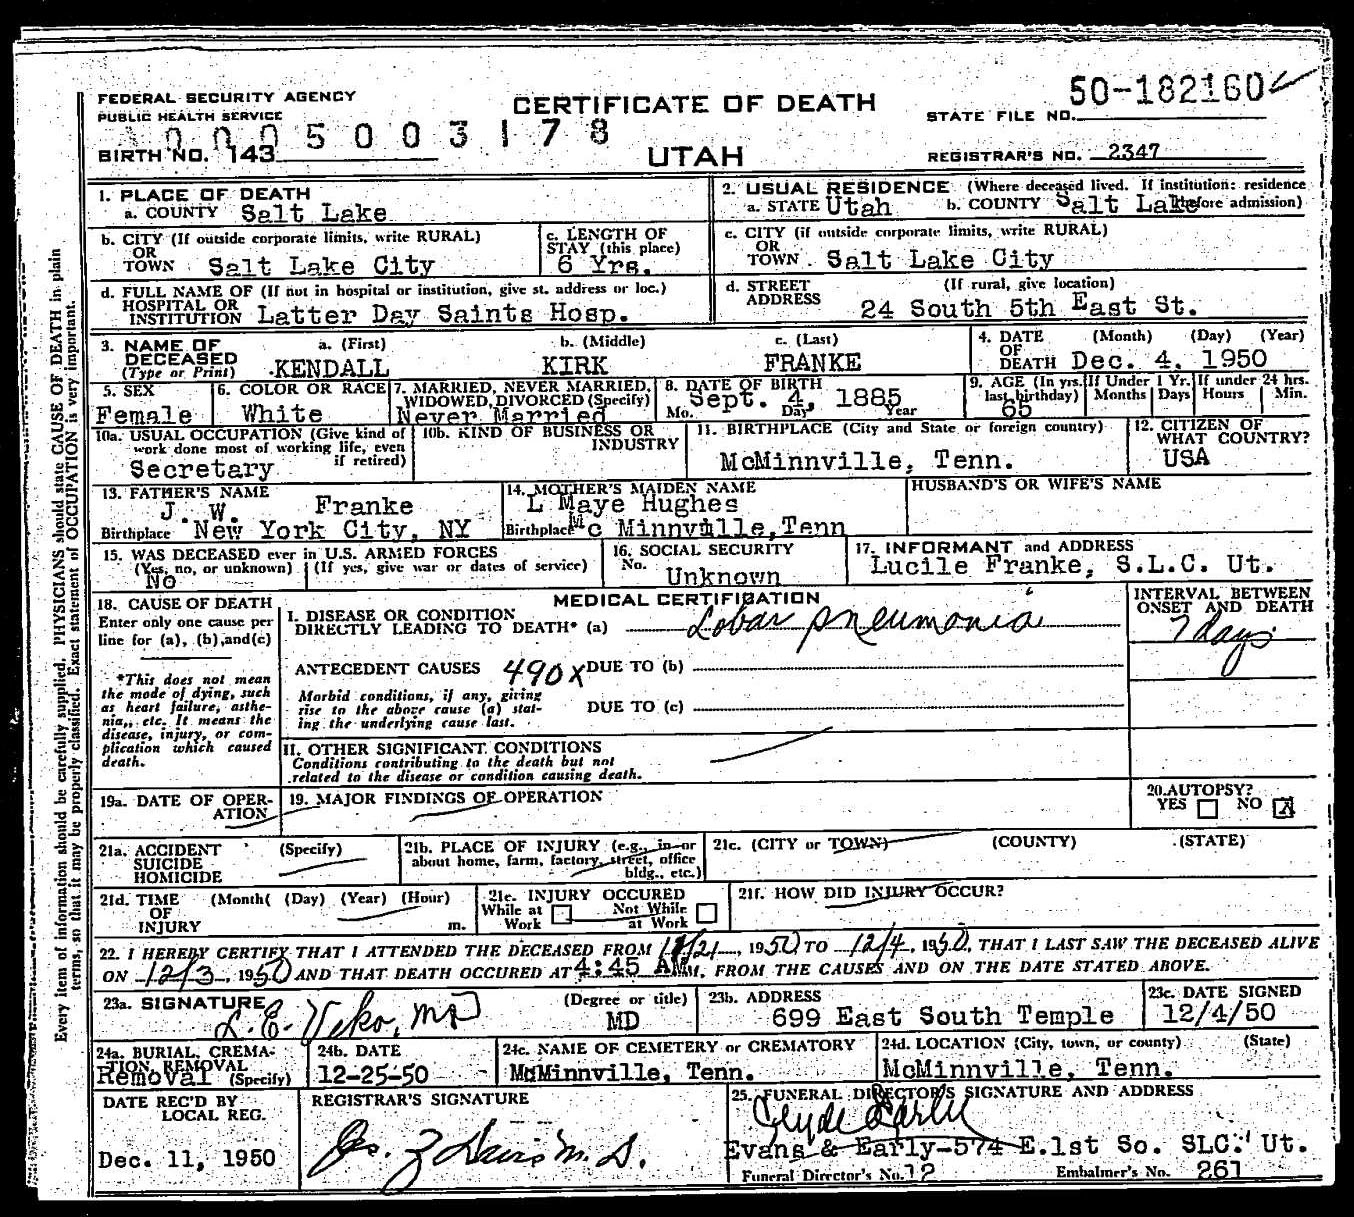 FEDERAL SECURITY AGENCY
PUBLIC HEALTH SERVICE
CERTIFICATE OF DEATH
50-182160
STATE FILE NO.
0005003178
BIRTH NO. 143
UTAH
REGISTRAR'S NO. 2347
1. PLACE OF DEATH
a. COUNTY Salt Lake
2. USUAL RESIDENCE (Where deceased lived. If institution: residence before admission)
a. STATE Utah b. COUNTY Salt Lake
b. CITY (If outside corporate limits, write RURAL)
OR
TOWN Salt Lake City
c. LENGTH OF
STAY (this place)
6 Yrs.
c. CITY (if outside corporate limits, write RURAL)
OR
TOWN Salt Lake City
d. FULL NAME OF (If not in hospital or institution, give st. address or loc.)
HOSPITAL OR
INSTITUTION Latter Day Saints Hosp.
d. STREET (If rural, give location)
ADDRESS 24 South 5th East St.
3. NAME OF DECEASED (Type or Print)
a. (First) b. (Middle) c. (Last)
KENDALL KIRK FRANKE
4. DATE OF DEATH (Month) (Day) (Year)
Dec. 4, 1950
5. SEX
Female
6. COLOR OR RACE
White
7. MARRIED, NEVER MARRIED,
WIDOWED, DIVORCED (Specify)
Never Married
8. DATE OF BIRTH
Sept. 4, 1885
Mo. Day Year
9. AGE (In yrs. last birthday)
65
If Under 1 Yr.
Months Days
If under 24 hrs.
Hours Min.
10a. USUAL OCCUPATION (Give kind of
work done most of working life, even
if retired)
Secretary
10b. KIND OF BUSINESS OR
INDUSTRY
11. BIRTHPLACE (City and State or foreign country)
McMinnville, Tenn.
12. CITIZEN OF
WHAT COUNTRY?
USA
13. FATHER'S NAME
J. W. Franke
Birthplace New York City, NY
14. MOTHER'S MAIDEN NAME
L Maye Hughes
Birthplace Mc Minnville, Tenn
HUSBAND'S OR WIFE'S NAME
15. WAS DECEASED ever in U.S. ARMED FORCES
(Yes, no, or unknown) (If yes, give war or dates of service)
No
16. SOCIAL SECURITY
No.
Unknown
17. INFORMANT and ADDRESS
Lucile Franke, S.L.C. Ut.
18. CAUSE OF DEATH
Enter only one cause per
line for (a), (b),and(c)
*This does not mean
the mode of dying, such
as heart failure, asthe-
nia,, etc. It means the
disease, injury, or com-
plication which caused
death.
MEDICAL CERTIFICATION
I. DISEASE OR CONDITION
DIRECTLY LEADING TO DEATH* (a) Lobar pneumonia
INTERVAL BETWEEN
ONSET AND DEATH
7 days
ANTECEDENT CAUSES 490X DUE TO (b)
Morbid conditions, if any, giving
rise to the above cause (a) stat-
ing the underlying cause last.
DUE TO (c)
II. OTHER SIGNIFICANT CONDITIONS
Conditions contributing to the death but not
related to the disease or condition causing death.
19a. DATE OF OPER-
ATION
19. MAJOR FINDINGS OF OPERATION
20. AUTOPSY?
YES NO X
21a. ACCIDENT (Specify)
SUICIDE
HOMICIDE
21b. PLACE OF INJURY (e.g., in or
about home, farm, factory, street, office
bldg., etc.)
21c. (CITY or TOWN) (COUNTY) (STATE)
21d. TIME (Month( (Day) (Year) (Hour)
OF
INJURY m.
21e. INJURY OCCURED
While at Work Not While at Work
21f. HOW DID INJURY OCCUR?
22. I HEREBY CERTIFY THAT I ATTENDED THE DECEASED FROM 11/21, 1950 TO 12/4, 1950, THAT I LAST SAW THE DECEASED ALIVE
ON 12/3, 1950 AND THAT DEATH OCCURED AT 4:45 AM M, FROM THE CAUSES AND ON THE DATE STATED ABOVE.
23a. SIGNATURE (Degree or title)
L. E. Viko, MD MD
23b. ADDRESS
699 East South Temple
23c. DATE SIGNED
12/4/50
24a. BURIAL, CREMA-
TION, REMOVAL
Removal (Specify)
24b. DATE
12-25-50
24c. NAME OF CEMETERY or CREMATORY
McMinnville, Tenn.
24d. LOCATION (City, town, or county) (State)
McMinnville, Tenn.
DATE REC'D BY
LOCAL REG.
Dec. 11, 1950
REGISTRAR'S SIGNATURE
25. FUNERAL DIRECTOR'S SIGNATURE AND ADDRESS
Clyde Early
Evans & Early-574 E.1st So. SLC. Ut.
Funeral Director's No. 12 Embalmer's No. 261
Every item of information should be carefully supplied. PHYSICIANS should state CAUSE OF DEATH in plain
terms, so that it may be properly classified. Exact statement of OCCUPATION is very important.